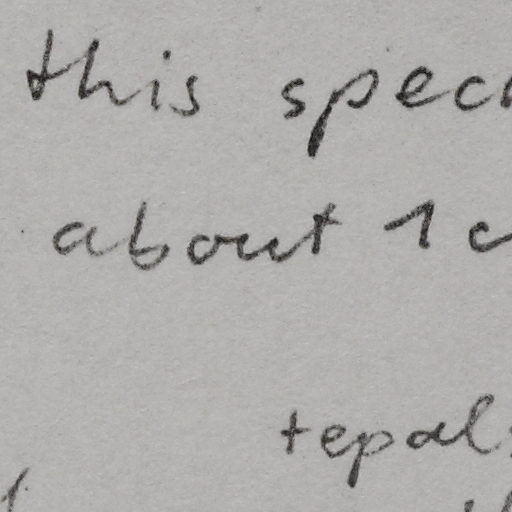 this spec
about 1 c
tepal